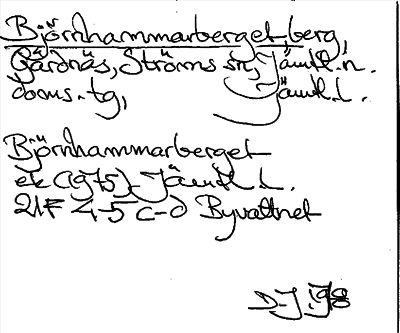 Björnhammarberget, berg,
Gärdnäs, Ströms sn, Jämtl. n.
doms. tg, Jämtl. l.
Björnhammarberget
ek (1975) Jämtl. L.
21F 4-5 c-d Byvattnet
D.J. 1978